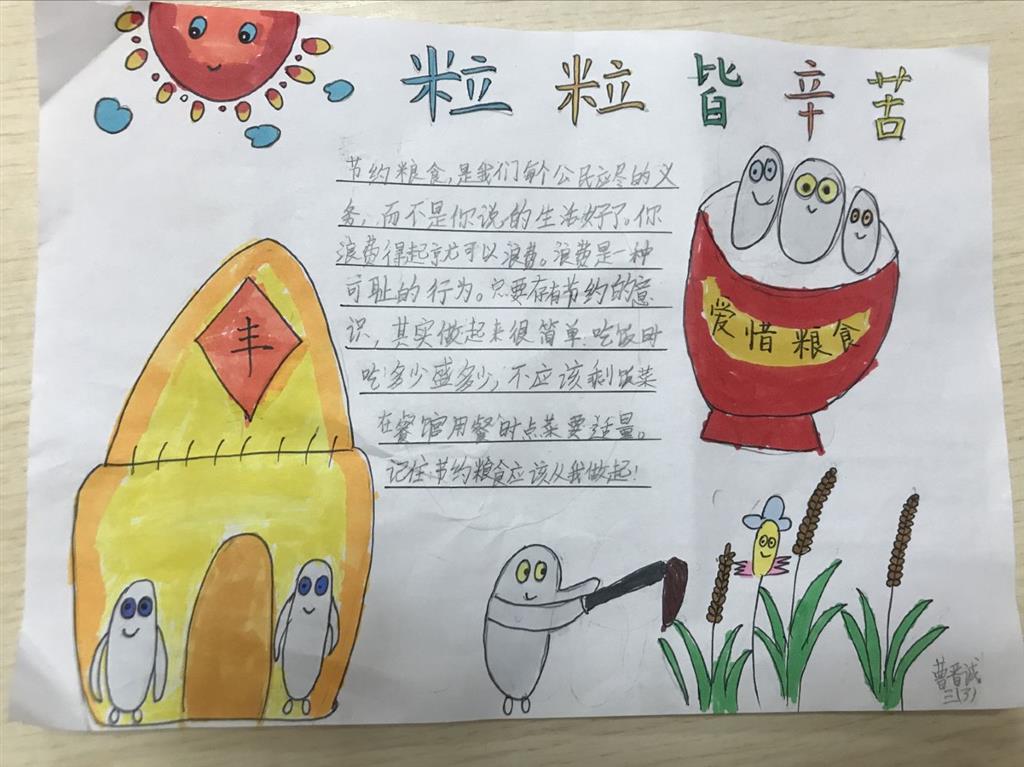 粒粒皆辛苦
节约粮食,是我们每个公民应尽的义
务,而不是你说的生活好了。你
浪费得起京尤可以浪费。浪费是一种
可耻的行为。只要存有节约的意
识,其实做起来很简单:吃饭时
吃多少盛多少,不应该剩饭菜
在餐馆用餐时点菜要适量。
记住节约粮食应该从我做起!
爱惜粮食
丰
曹晋诚
三(3)